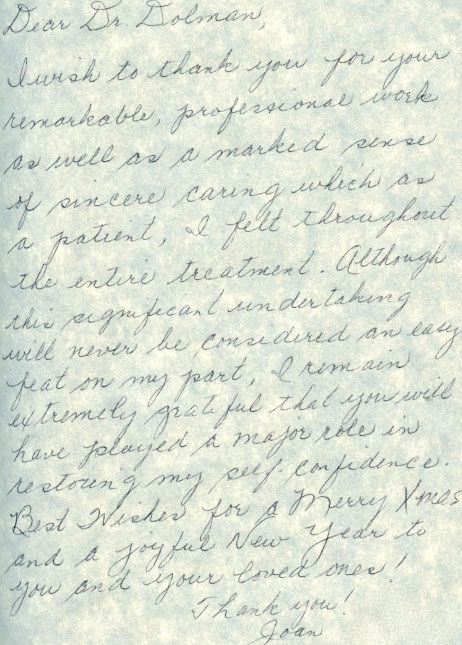 Dear Dr. Dolman,
I wish to thank you for your
remarkable, professional work
as well as a marked sense
of sincere caring which as
a patient, I felt throughout
the entire treatment. Although
this significant undertaking
will never be considered an easy
feat on my part, I remain
extremely grateful that you will
have played a major role in
restoring my self-confidence.
Best Wishes for a Merry Xmas
and a joyful New Year to
you and your loved ones!
Thank you!
Joan